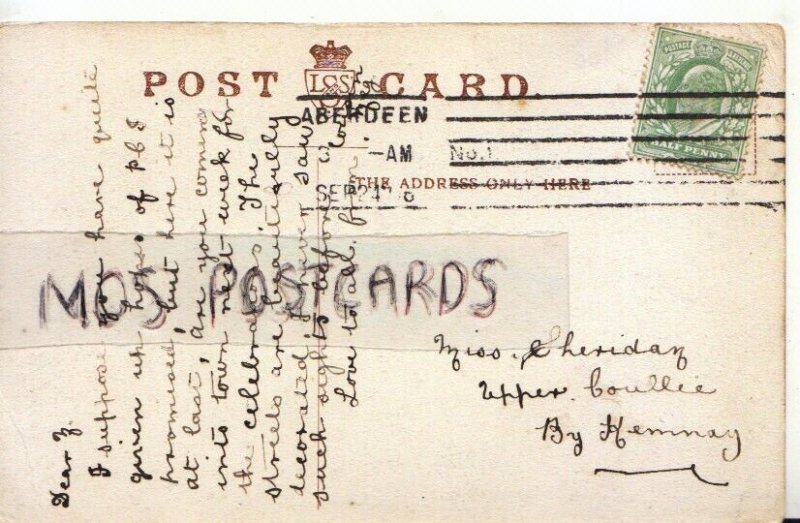 POST CARD.
L&S
ABERDEEN
3 -AM
SEP 24
No.1
HALF PENNY
POSTAGE
THE ADDRESS ONLY HERE
MDS POSTCARDS
Dear
I suppose you have quite
given up hopes of P.C. I
promised, but here it is
at last, are you coming
into town next week for
the celebrations. The
streets are beautifully
decorated, I never saw
such sights before.
Love to all from
Miss. Sheridan
Upper Coullie
By Kemnay